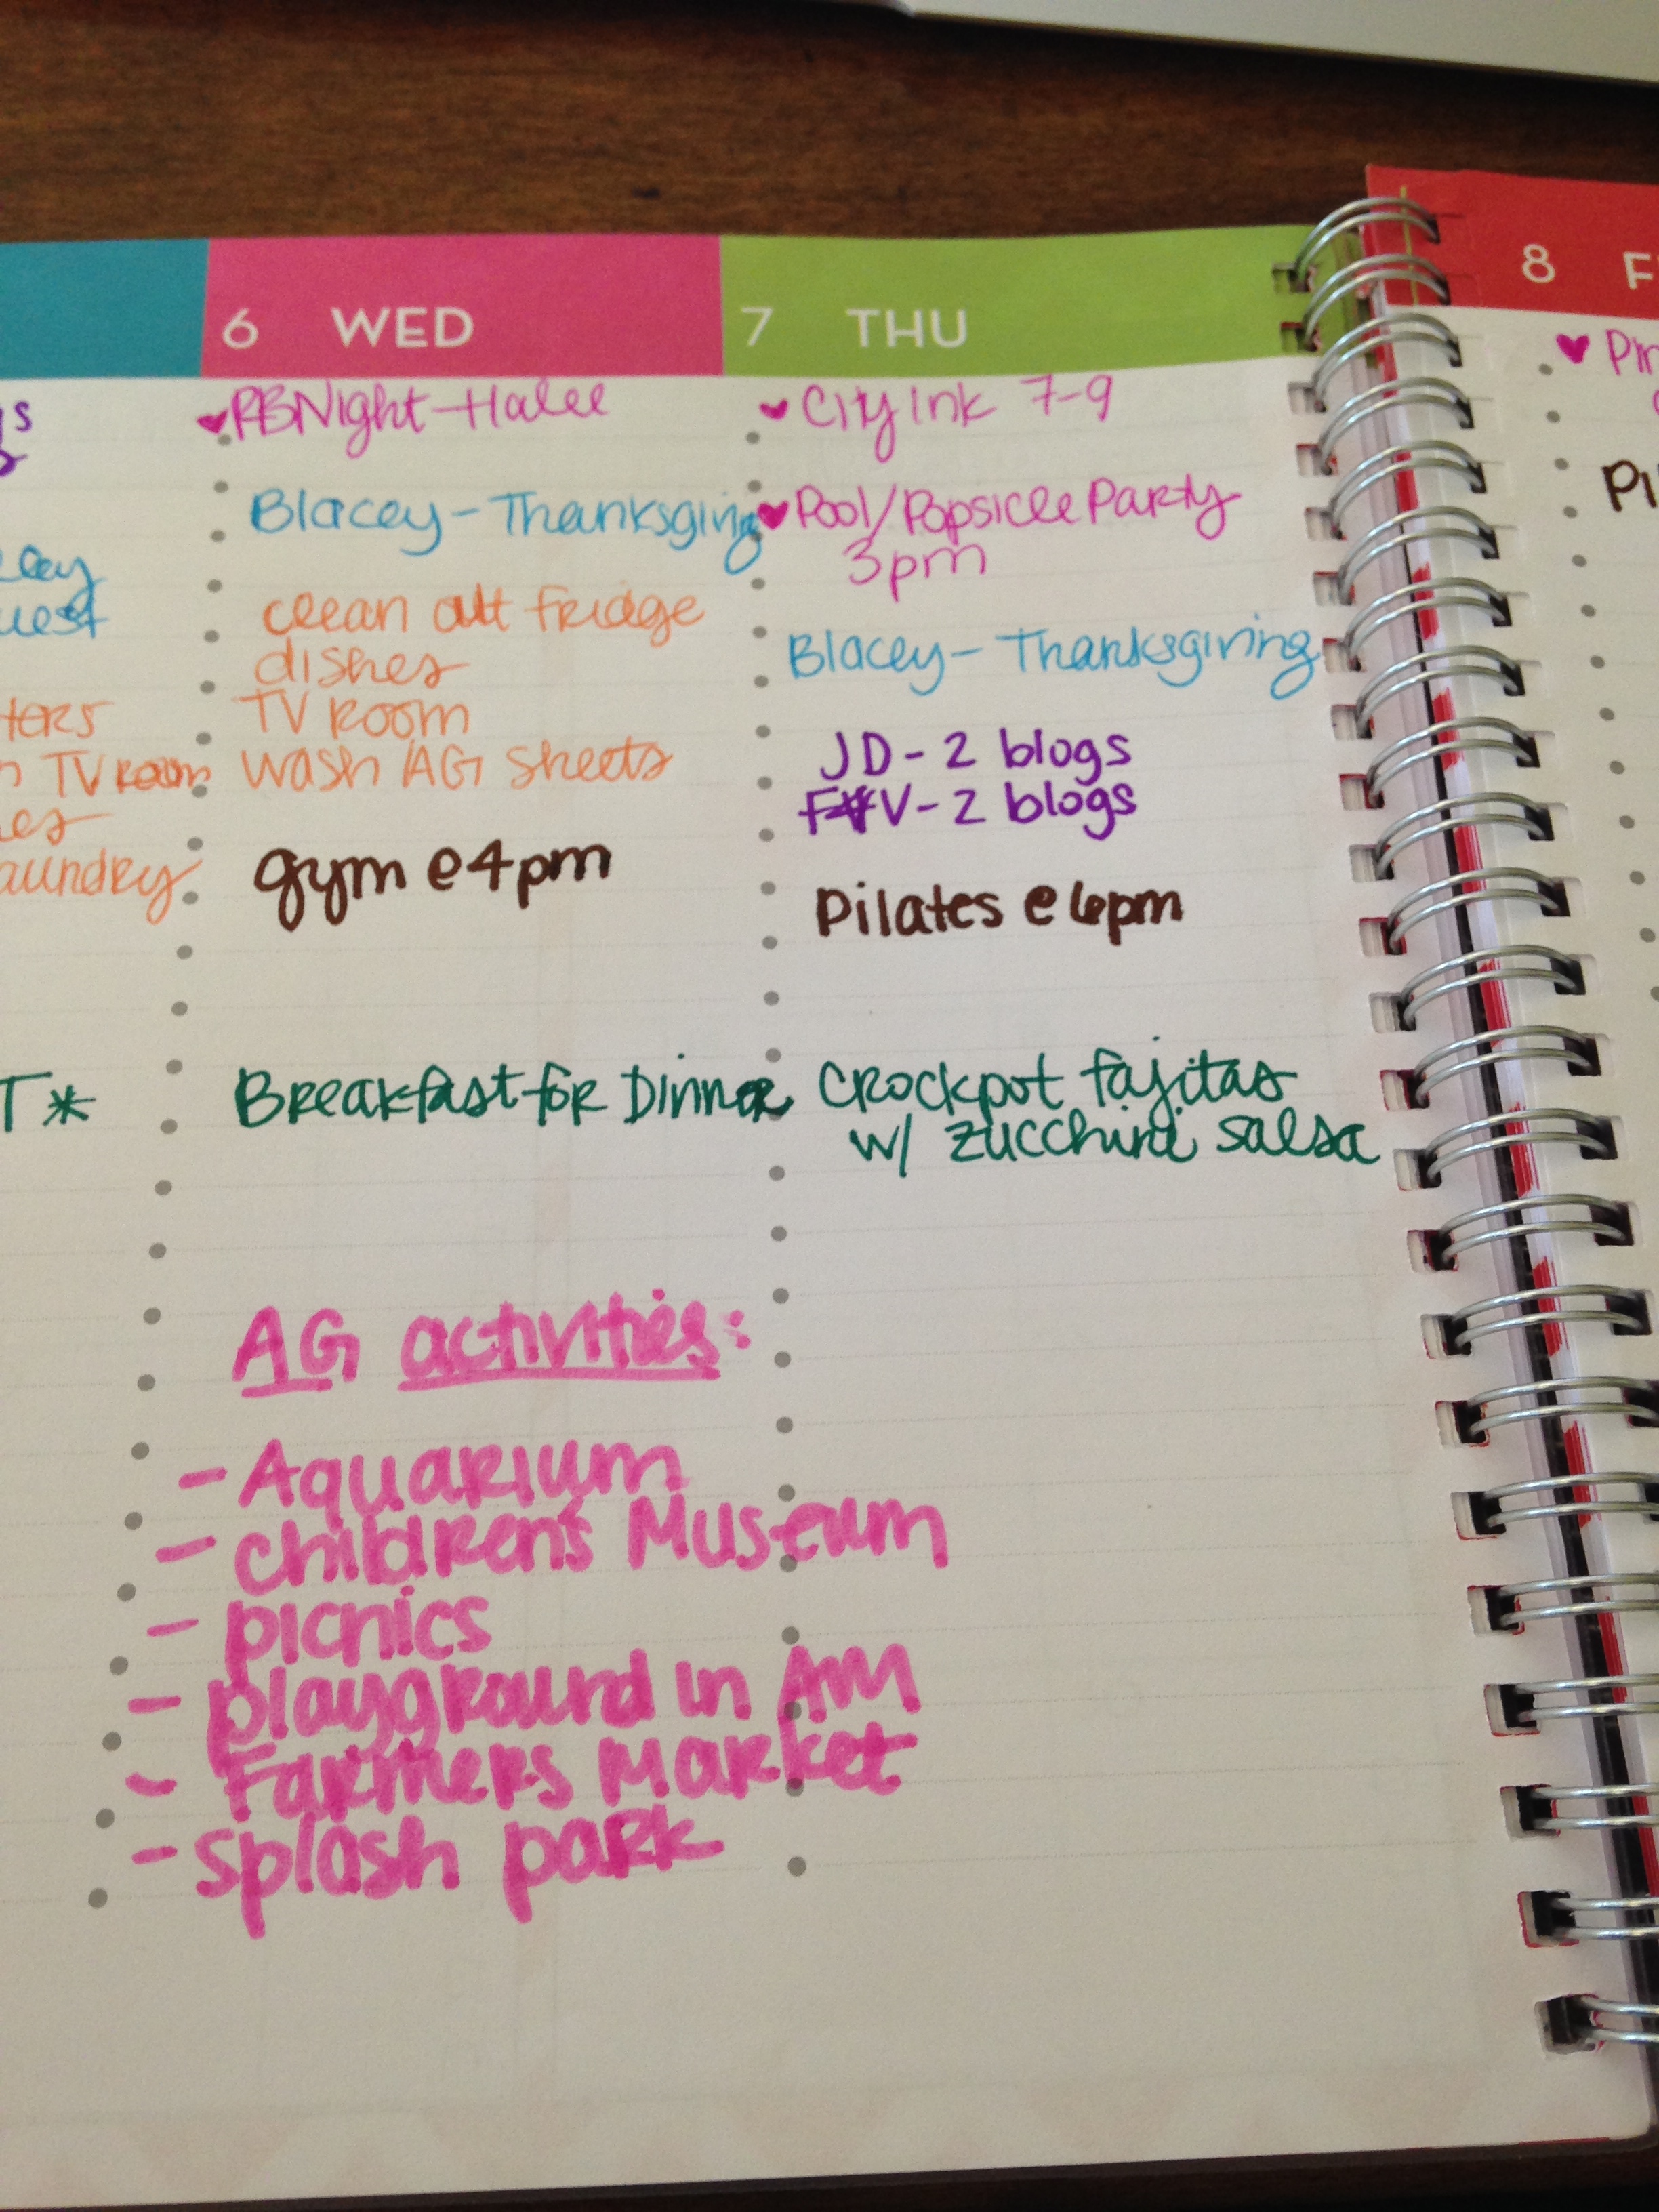 6 WED
♥ PBNight-Halee
Blacey - Thanksgiving
clean out fridge
dishes
TV Room
wash AG sheets
gym @ 4pm
Breakfast for Dinner
7 THU
♥ City Ink 7-9
♥ Pool/Popsicle Party
3pm
Blacey - Thanksgiving
JD - 2 blogs
V - 2 blogs
Pilates @ 6pm
Crockpot fajitas
w/ zucchini salsa
AG activities:
- Aquarium
- children's Museum
- picnics
- playground in AM
- Farmers Market
- splash park
TV Room
T*
8